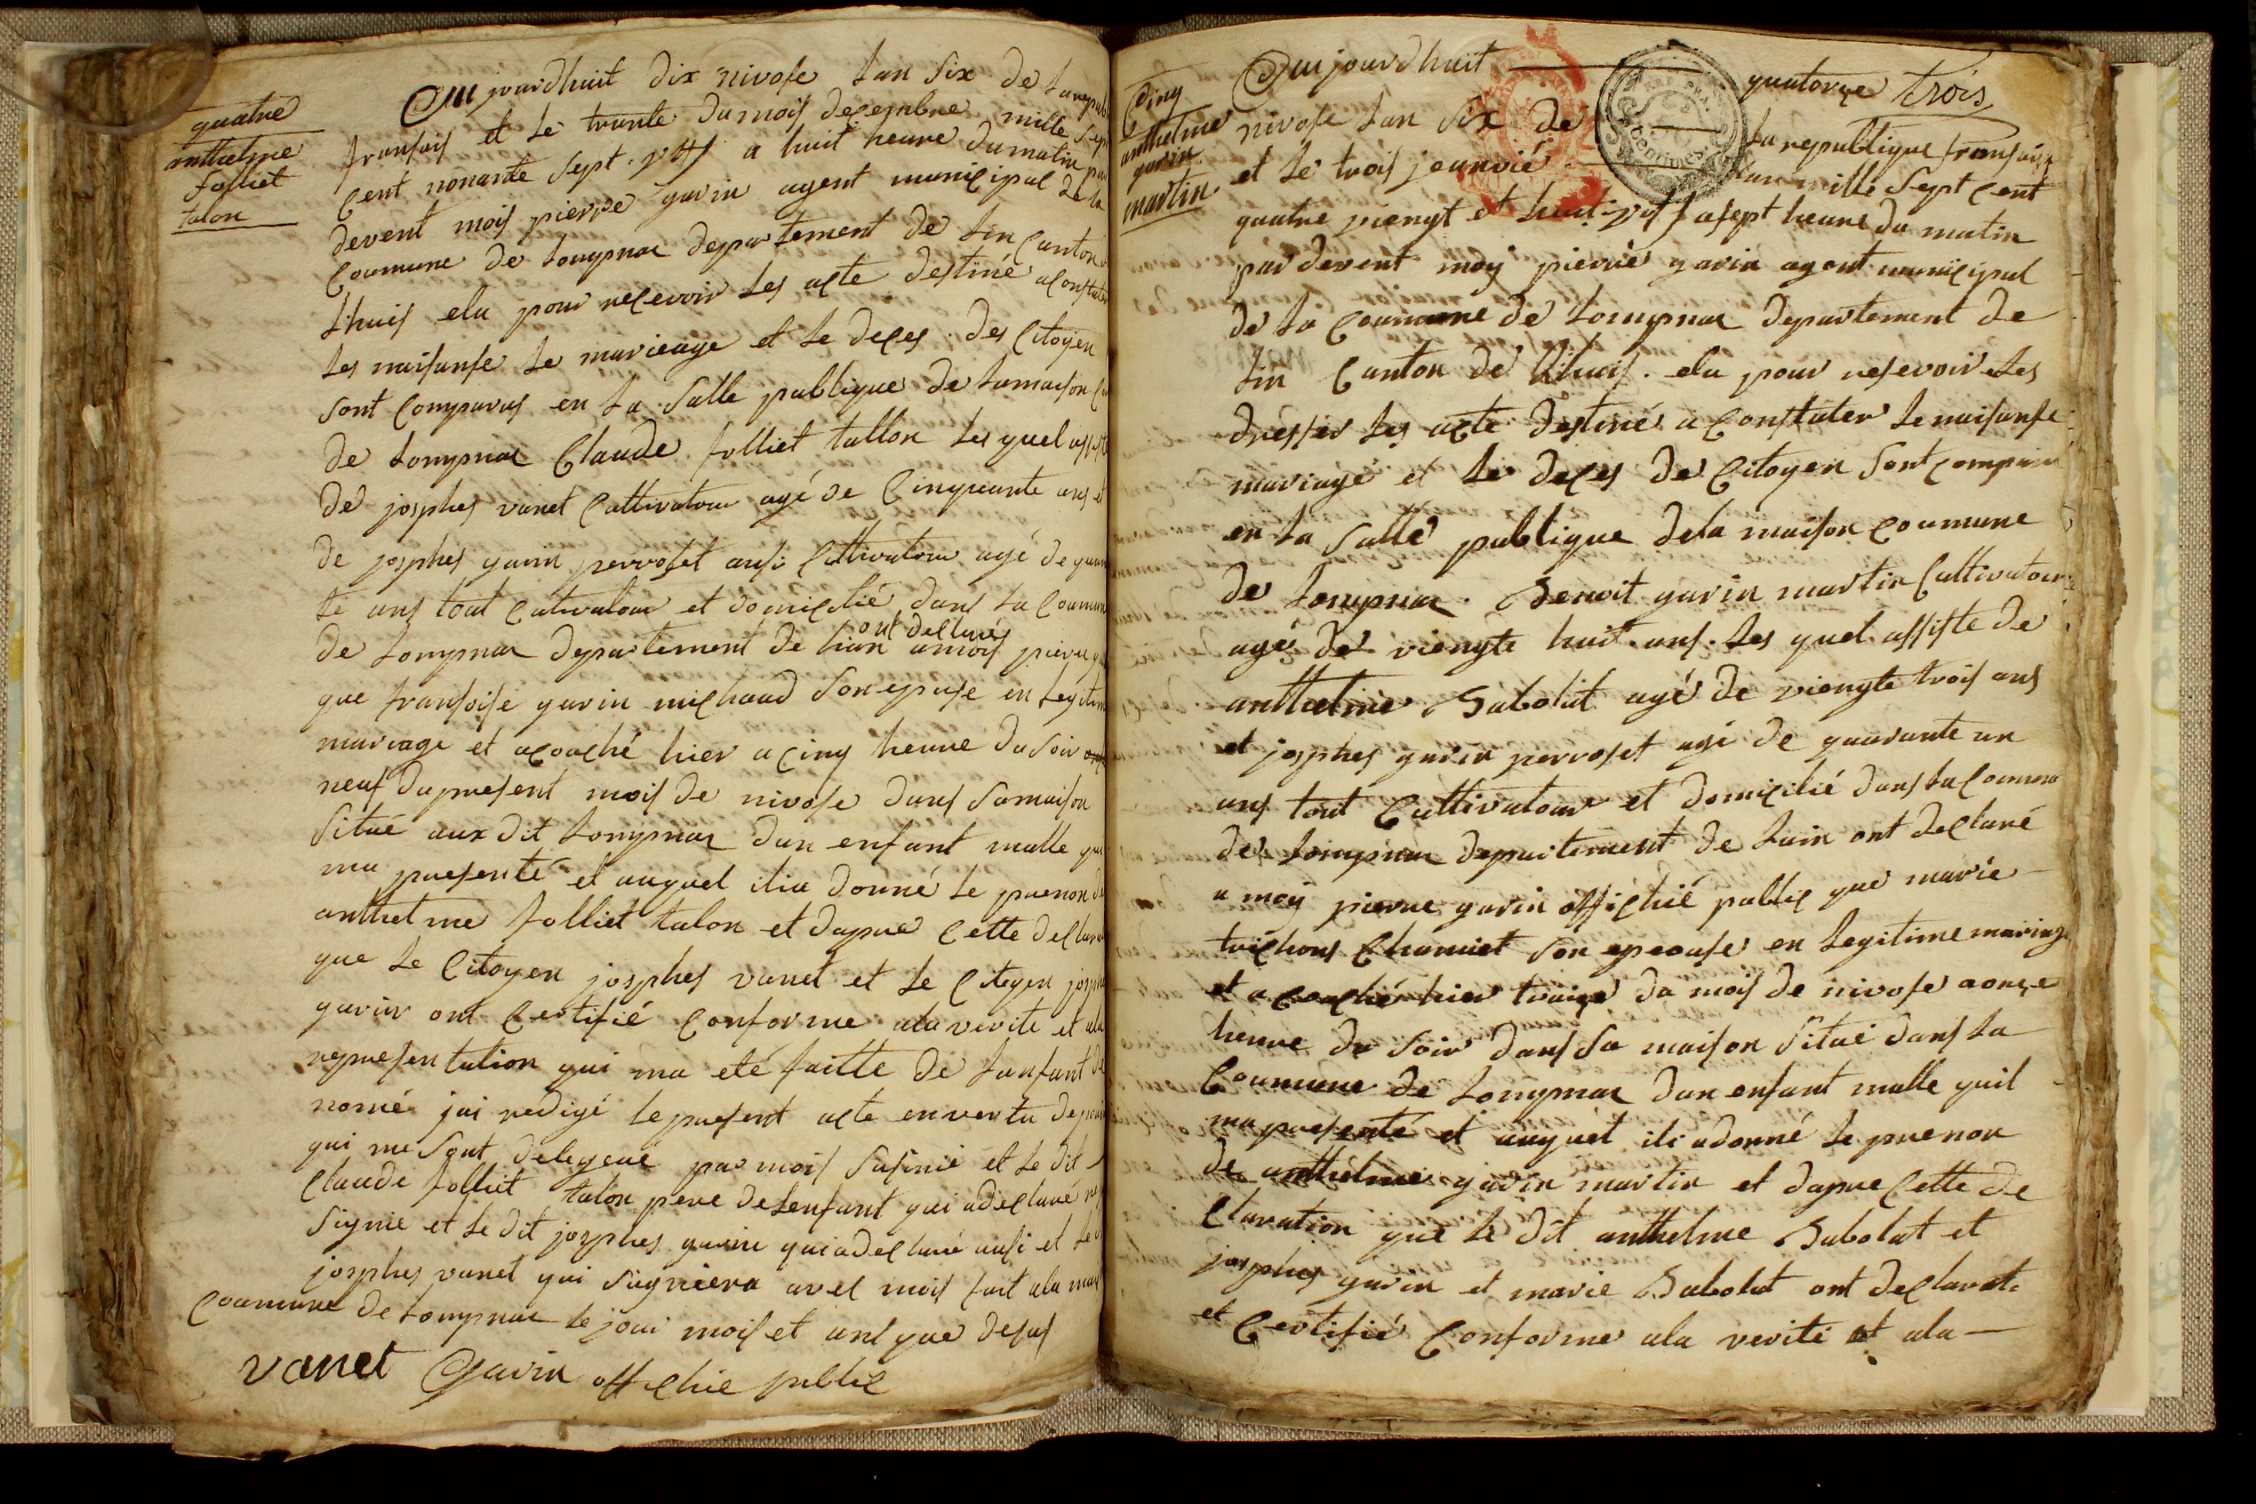 quatre
anthelme
folliet
talon
Au jourdhuit dix nivose lan six de la repub
fransais et le trante du mois decembre mille sept
cent nonante sept. v.st. a huit heure du matin par
devent mois pierre garin agent municipal de la
coumune de lompnar departement de lin canton
lhuis elu pour recevoir les acte destiné a constater
les naisanse le marieage et le deces des citoyen
sont comparus en la salle publique de lamaison
de lompnar Claude folliet tallon les quel assiste
de josphes vanet cultivatour agé de cinquante ans et
de josphes garin perroset ausi cultivatour agé de quaran
te ans tout cutivatour et domicilié dans la coumune
ont declarés
de lompnar departement de lian amois pierre
que fransoise garin michaud son epuse en legitime
mariage et acouché hier a cinq heure du soir
neuf du present mois de nivose dans samaison
situé aux dit lompnar dun enfant malle
ma presenté et auquel ilia donné le prenon de
anthelme folliet talon et dapre cette declara
que le citoyen josphes vanet et le citoyen josphe
garin ont certifié conforme ala verite et ala
representation qui ma eté faitte de lanfant de
nomé jai redigé le present acte en vertu de
qui me sont delegeué par mois susinié et le dit
Claude folliet talon pere de lenfant qui adeclaré
signie et le dit josphes garin qui adeclaré ausi et le
josphes vanet qui signiera avec mois fait ala
coumune de lompnar le jour mois et ans que desus
vanet Garin offichie public
trois
Cinq
anthelme
garin
martin
Aujourdhuit quatorze
nivose lan six de la republique fransaise
et le trois jeanvié lan mille sept cent
quatre viengt et huit v.st. a sept heure du matin
par devent moy pierre garin agent municipal
de la coumune de lompnar departement de
lin canton de lhuis. elu pour resevoir les
dresser les acte destiné a constater le naisanse
mariage et le deces de citoyen sont comparu
en la salle publique dela maison coumune
de lompnar. Benoit garin martin cultivatour
agé de viengte huit ans. les quel assiste de
anthelme Sabolat agé de viengte trois ans
et josphes garin perroset agé de quarante un
ans tout cultivatour et domicilié dans la coumune
de lompnar departement de lain ont declaré
a moy pierre garin offichié public que marie
trichons chamiet son epeouse en legitime mariage
et acouché hier traize du mois de nivose aonze
heure du soir dans sa maison situé dans la
Coumune de lompnar dun enfant malle quil
ma presenté et auquel ili adonné le prenon
de anthelme garin martin et dapre cette de
claration que le dit anthelme Sabolat et
josphes garin et marie Sabolat ont declarat.
et certifié conforme ala verite et ala